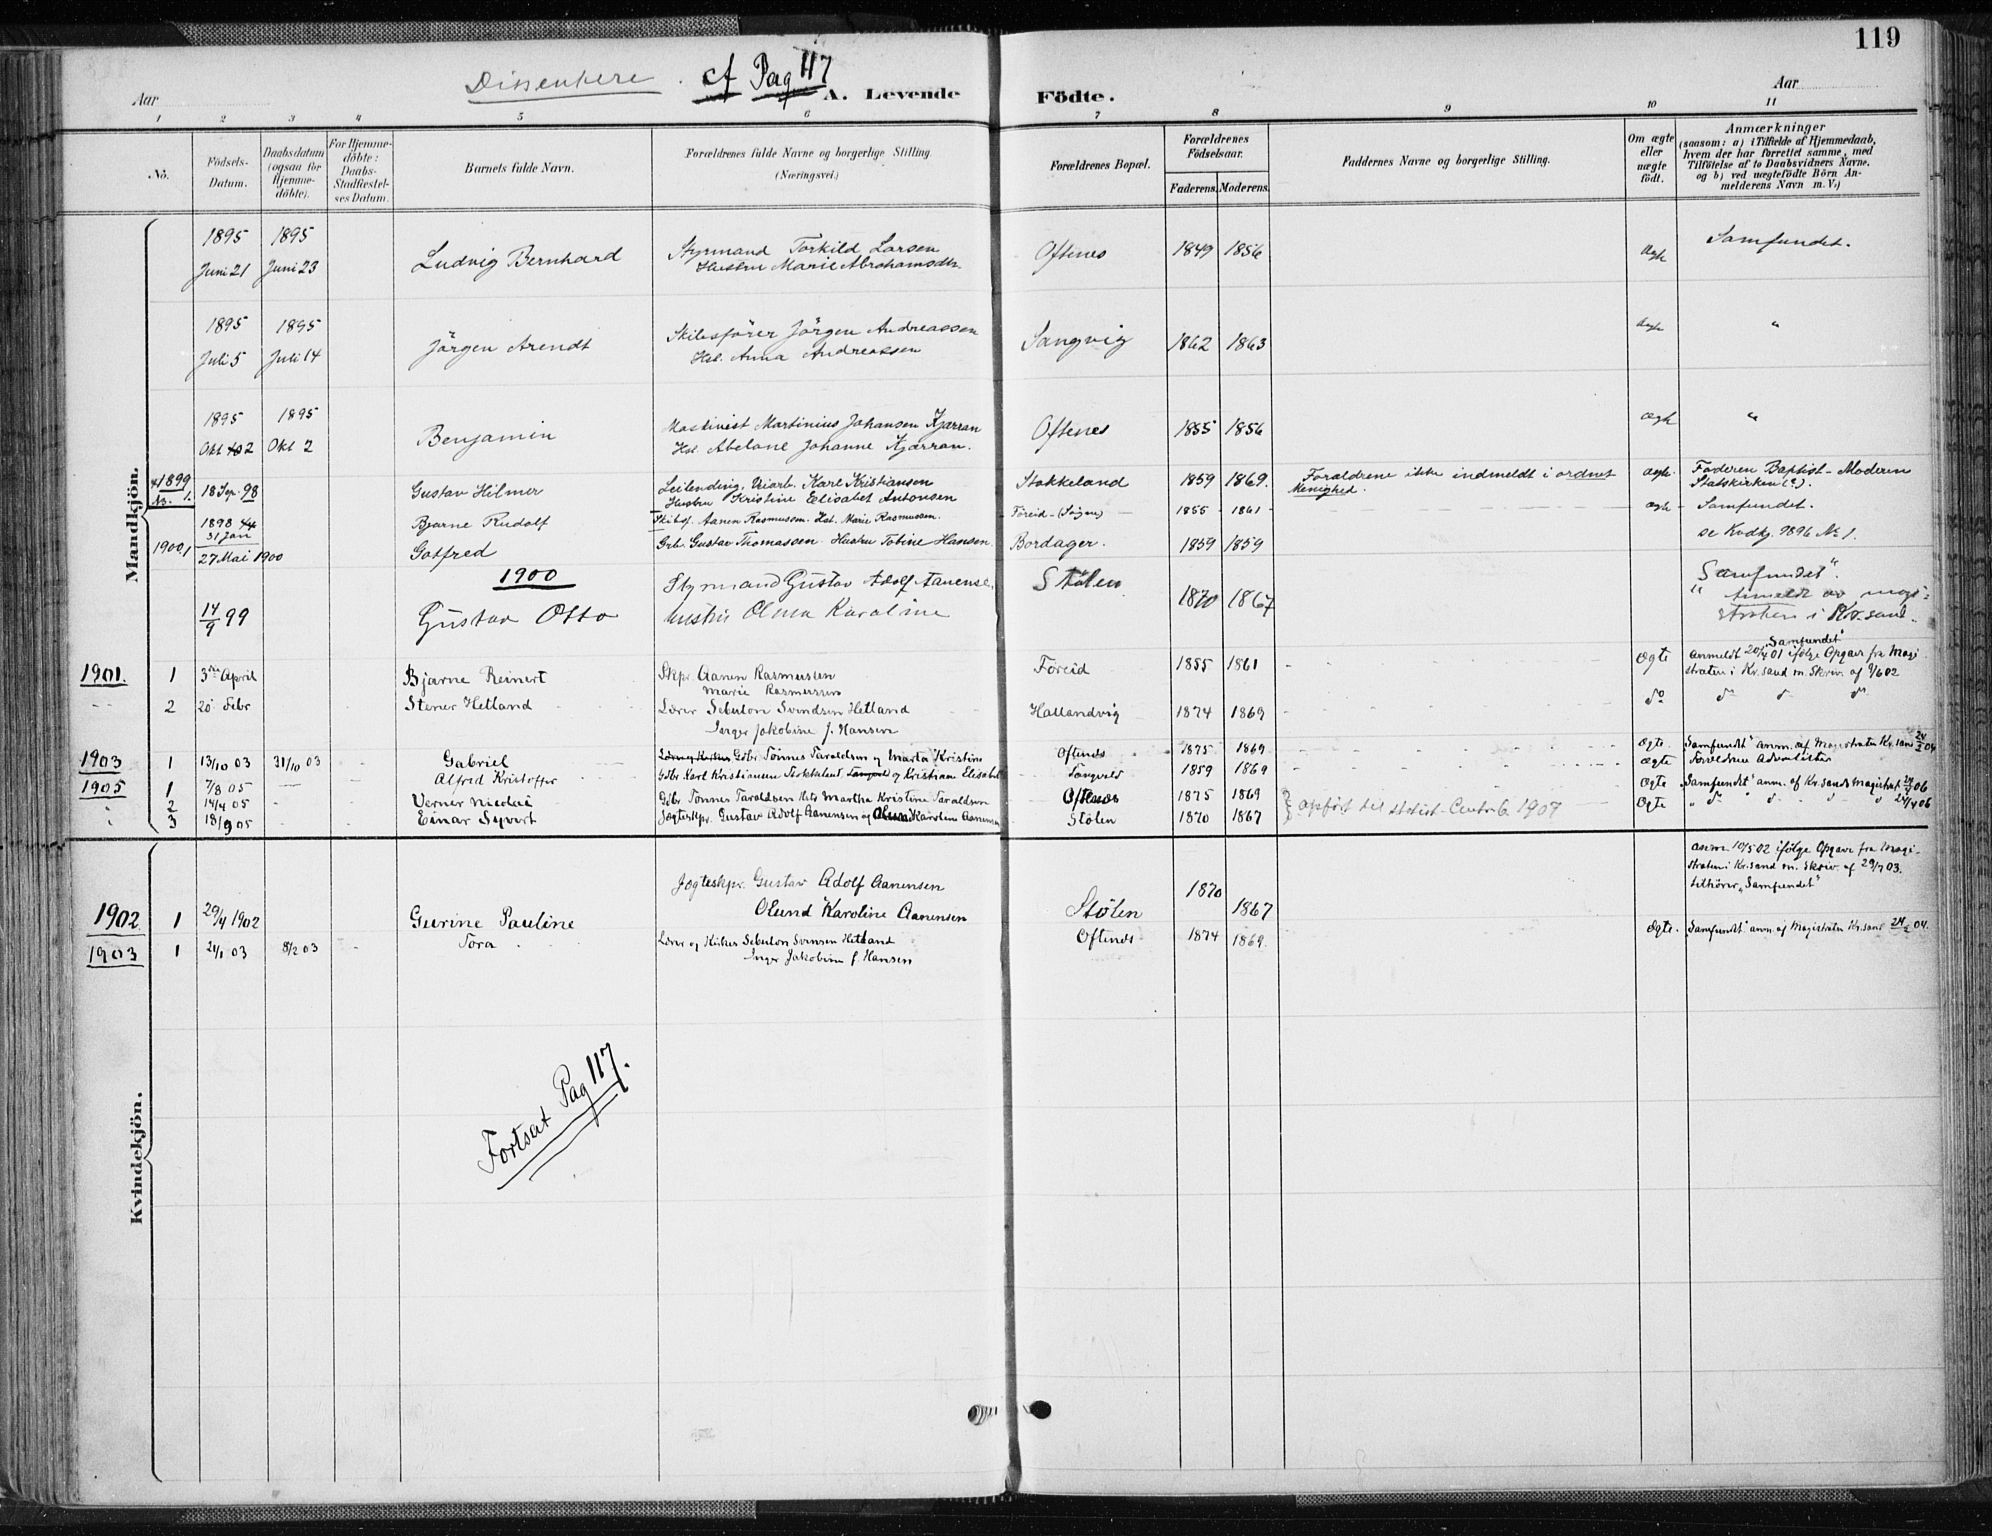 119
Dissentere . cf Pag 117
Aar
A. Levende Födte.
Aar
1 2 3 4 5 6 7 8 9 10 11
No.
Födsels-Datum.
Daabsdatum (ogsaa for Hjemmedöbte).
For Hjemmedöbte: Daabs-Stadfæstelses Datum.
Barnets fulde Navn.
Forældrenes fulde Navne og borgerlige Stilling. (Næringsvei.)
Forældrenes Bopæl.
Forældrenes Födselsaar.
Faderens. Moderens.
Faddernes Navne og borgerlige Stilling.
Om ægte eller uægte födt.
Anmærkninger
(saasom: a) i Tilfælde af Hjemmedaab, hvem der har forrettet samme, med Tilföielse af to Daabsvidners Navne, og b) ved uægtefödte Börn Anmelderens Navn m. V.)
Mandkjön.
1895 Juni 21 1895 Juni 23 Ludvig Bernhard Styrmand Torkild Larsen Oftenes 1849 1856 Ægte Samfundet.
Hustru Marie Abrahamsdtr.
1895 Juli 5 1895 Juli 14 Jörgen Arendt Skibsfører Jörgen Andreassen Sangvig 1862 1863 Ægte "
Hst. Anna Andreassen
1895 Okt 2 1895 Okt 2 Benjamin Maskinist Martinius Johansen Kjærran Oftenes 1855 1856 Ægte "
Hst. Abelone Johanne Kjærran.
1899 No. 1. 18 Sep. 98 Gustav Hilmer Leilending, Veiarb. Karl Kristiansen Stokkeland 1859 1869. Forældrene ikke indmeldt i ordnet Menighed. ægte. Faderen Baptist - Moderen Statskirken (?).
Hustru Kristine Elisabet Antonsen
1898 31 Jan Bjarne Rudolf Skibsf. Aanen Rasmussen. Hst. Marie Rasmussen. Föreid - (Søgne) 1855 - 1861 - ægte Samfundet.
1900 1 27 Mai 1900 Gotfred Grb. Gustav Thomassen. Hustru Tobine Hansen. Bordager. 1859 1859 se Kvdkj. 1896 No 1.
1900
14/9 99 Gustav Otto Styrmand Gustav Adolf Aanense. Stølen 1870 1867 Samfundet".
hustru Olma Karoline
" Anmeldt av magistraten i Kr.sand.
1901. 1 3die April Bjarne Reinert Skpr. Aanen Rasmussen Föreid 1855 1861 - Ægte "Samfundet"
Marie Rasmussen
anmeldt 20/4 01 ifølge Opgave fra Magistraten i Kr.sand m. Skriv. af 1/602
2 20 Febr Stener Hetland Lærer Sebulon Svindsen Hetland Hallandvig 1874 1869 do do do do
Inger Jakobine f. Hansen
1903 1 13/10 03 31/10 03 Gabriel Gdbr. Tønnes Taraldsen og Marta Kristine Oftenes 1875 1869 Ægte. Samfundt" anm. af Magistraten Kr.sand 24/2 04
Alfred Kristoffer Gdbr Karl Kristiansen Stokkeland og Kristiane Elisabet Songvald 1859 1869 ægte Forældrene Adventister
1905 1 7/8 05 - Verner Nicolai Gdbr. Tønnes Taraldsen Hst. Martha Kristine Taraldsen Oftenes 1875 1869 Ægte Samfundet" anm. af Kr.sands Magistrat 24/4 06
2 14/4 05
" 3 18/9 05 - Einar Syvert Jægteskpr. Gustav Adolf Aanensen og Olund Karoline Aanensen Stølen 1870 1867 opført til statist. Centrb 1907 Ægte " do do " 24/4 06
Kvindekjön.
1902 1 29/4 1902 Gurine Pauline Jægteskpr. Gustav Adolf Aanensen Stølen 1870 1867
Olund Karoline Aanensen
anm. 10/5 02 ifølge Opgave fra Magistraten i Kr.sand m. Skriv. af 29/1 03. tilhører "Samfundet"
1903 1 24/1 03 8/2 03 - Tora Lærer og Kirkes. Sebulon Svensen Hetland Oftenes 1874 1869. Ægte. Samfundt" anm. af Magistraten Kr.sand 24/2 04.
Inger Jakobine f. Hansen
Fortsat Pag 117.